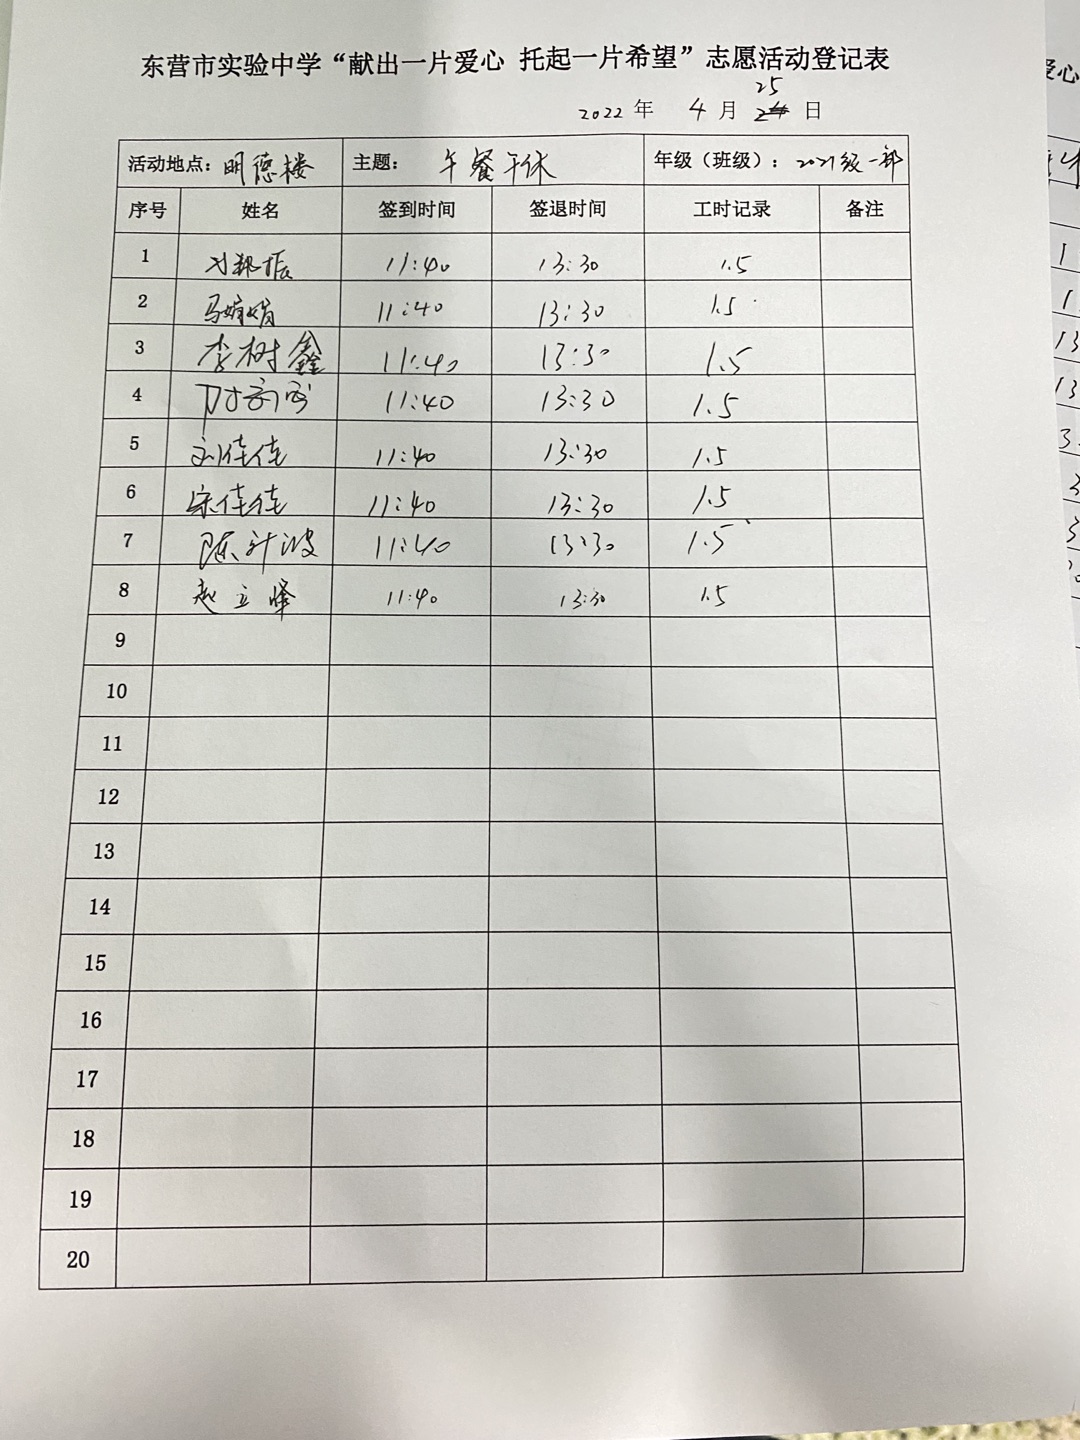 东营市实验中学“献出一片爱心 托起一片希望”志愿活动登记表
25
2022 年 4 月 24 日
活动地点： 明德楼 主题： 午餐午休 年级（班级）： 2021级一部
序号 姓名 签到时间 签退时间 工时记录 备注
1 11:40 13:30 1.5
2 马娟娟 11:40 13:30 1.5
3 李树鑫 11:40 13:30 1.5
4 11:40 13:30 1.5
5 刘佳佳 11:40 13:30 1.5
6 宋佳佳 11:40 13:30 1.5
7 陈升波 11:40 13:30 1.5
8 赵立峰 11:40 13:30 1.5
9
10
11
12
13
14
15
16
17
18
19
20